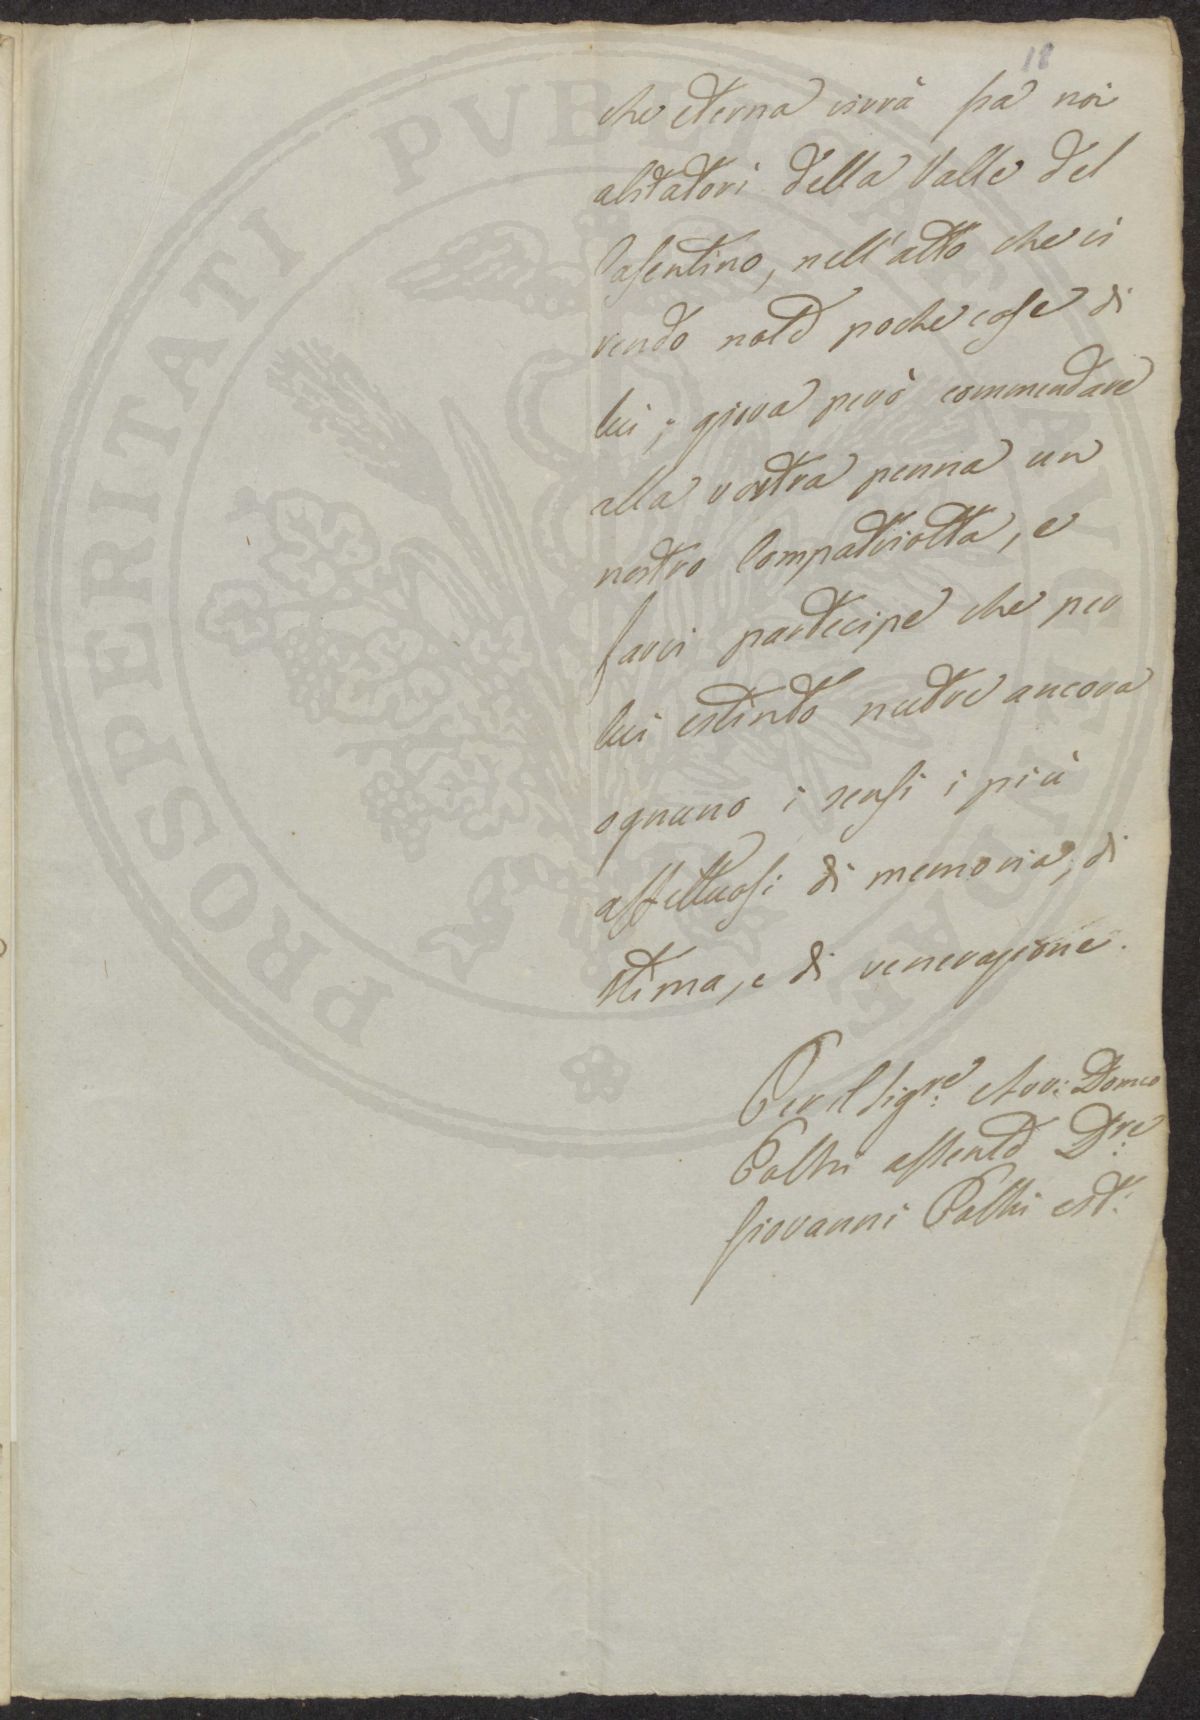 18
che eterna vivrà fra noi
abitatori della Valle del
Casentino, nell'atto che vi
rendo note poche cose di
lui; giova però commendare
alla vostra penna un
nostro Compatriotta, e
farvi partecipe che per
lui estinto nutre ancora
ognuno i sensi i più
affettuosi di memoria, di
stima, e di venerazione.
Per il Sig.re Avv: Domco
assente D.re
Giovanni est:
PROSPERITATI PVBLICAE AVGENDAE